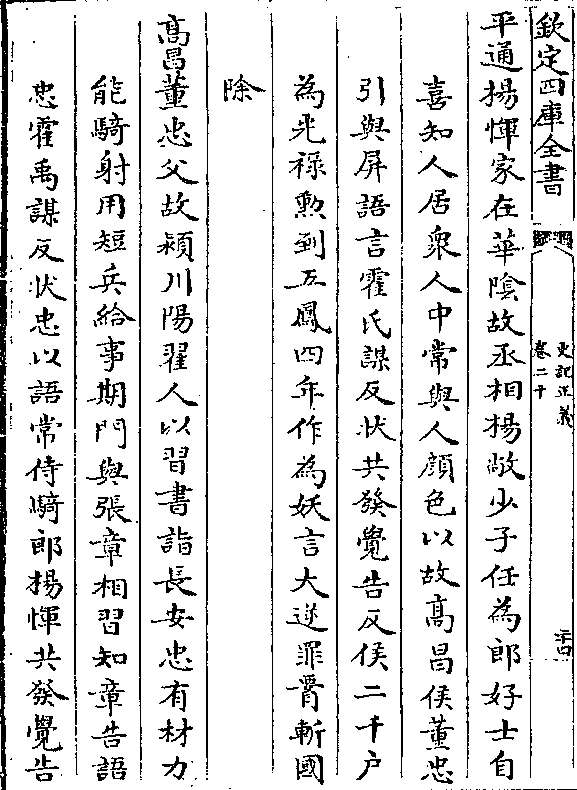 欽定四庫全書
史記正義
卷二十
二十四
平通揚惲家在華陰故丞相揚敞少子任為郎好士自
喜知人居衆人中常與人顔色以故髙昌侯董忠
引與屏語言霍氏謀反狀共發覺告反侯二千户
為光祿勲到五鳳四年作為妖言大逆罪腰斬國
除
髙昌董忠父故潁川陽翟人以習書詣長安忠有材力
能騎射用短兵給事期門與張章相習知章告語
忠霍禹謀反狀忠以語常侍騎郎揚惲共發覺告